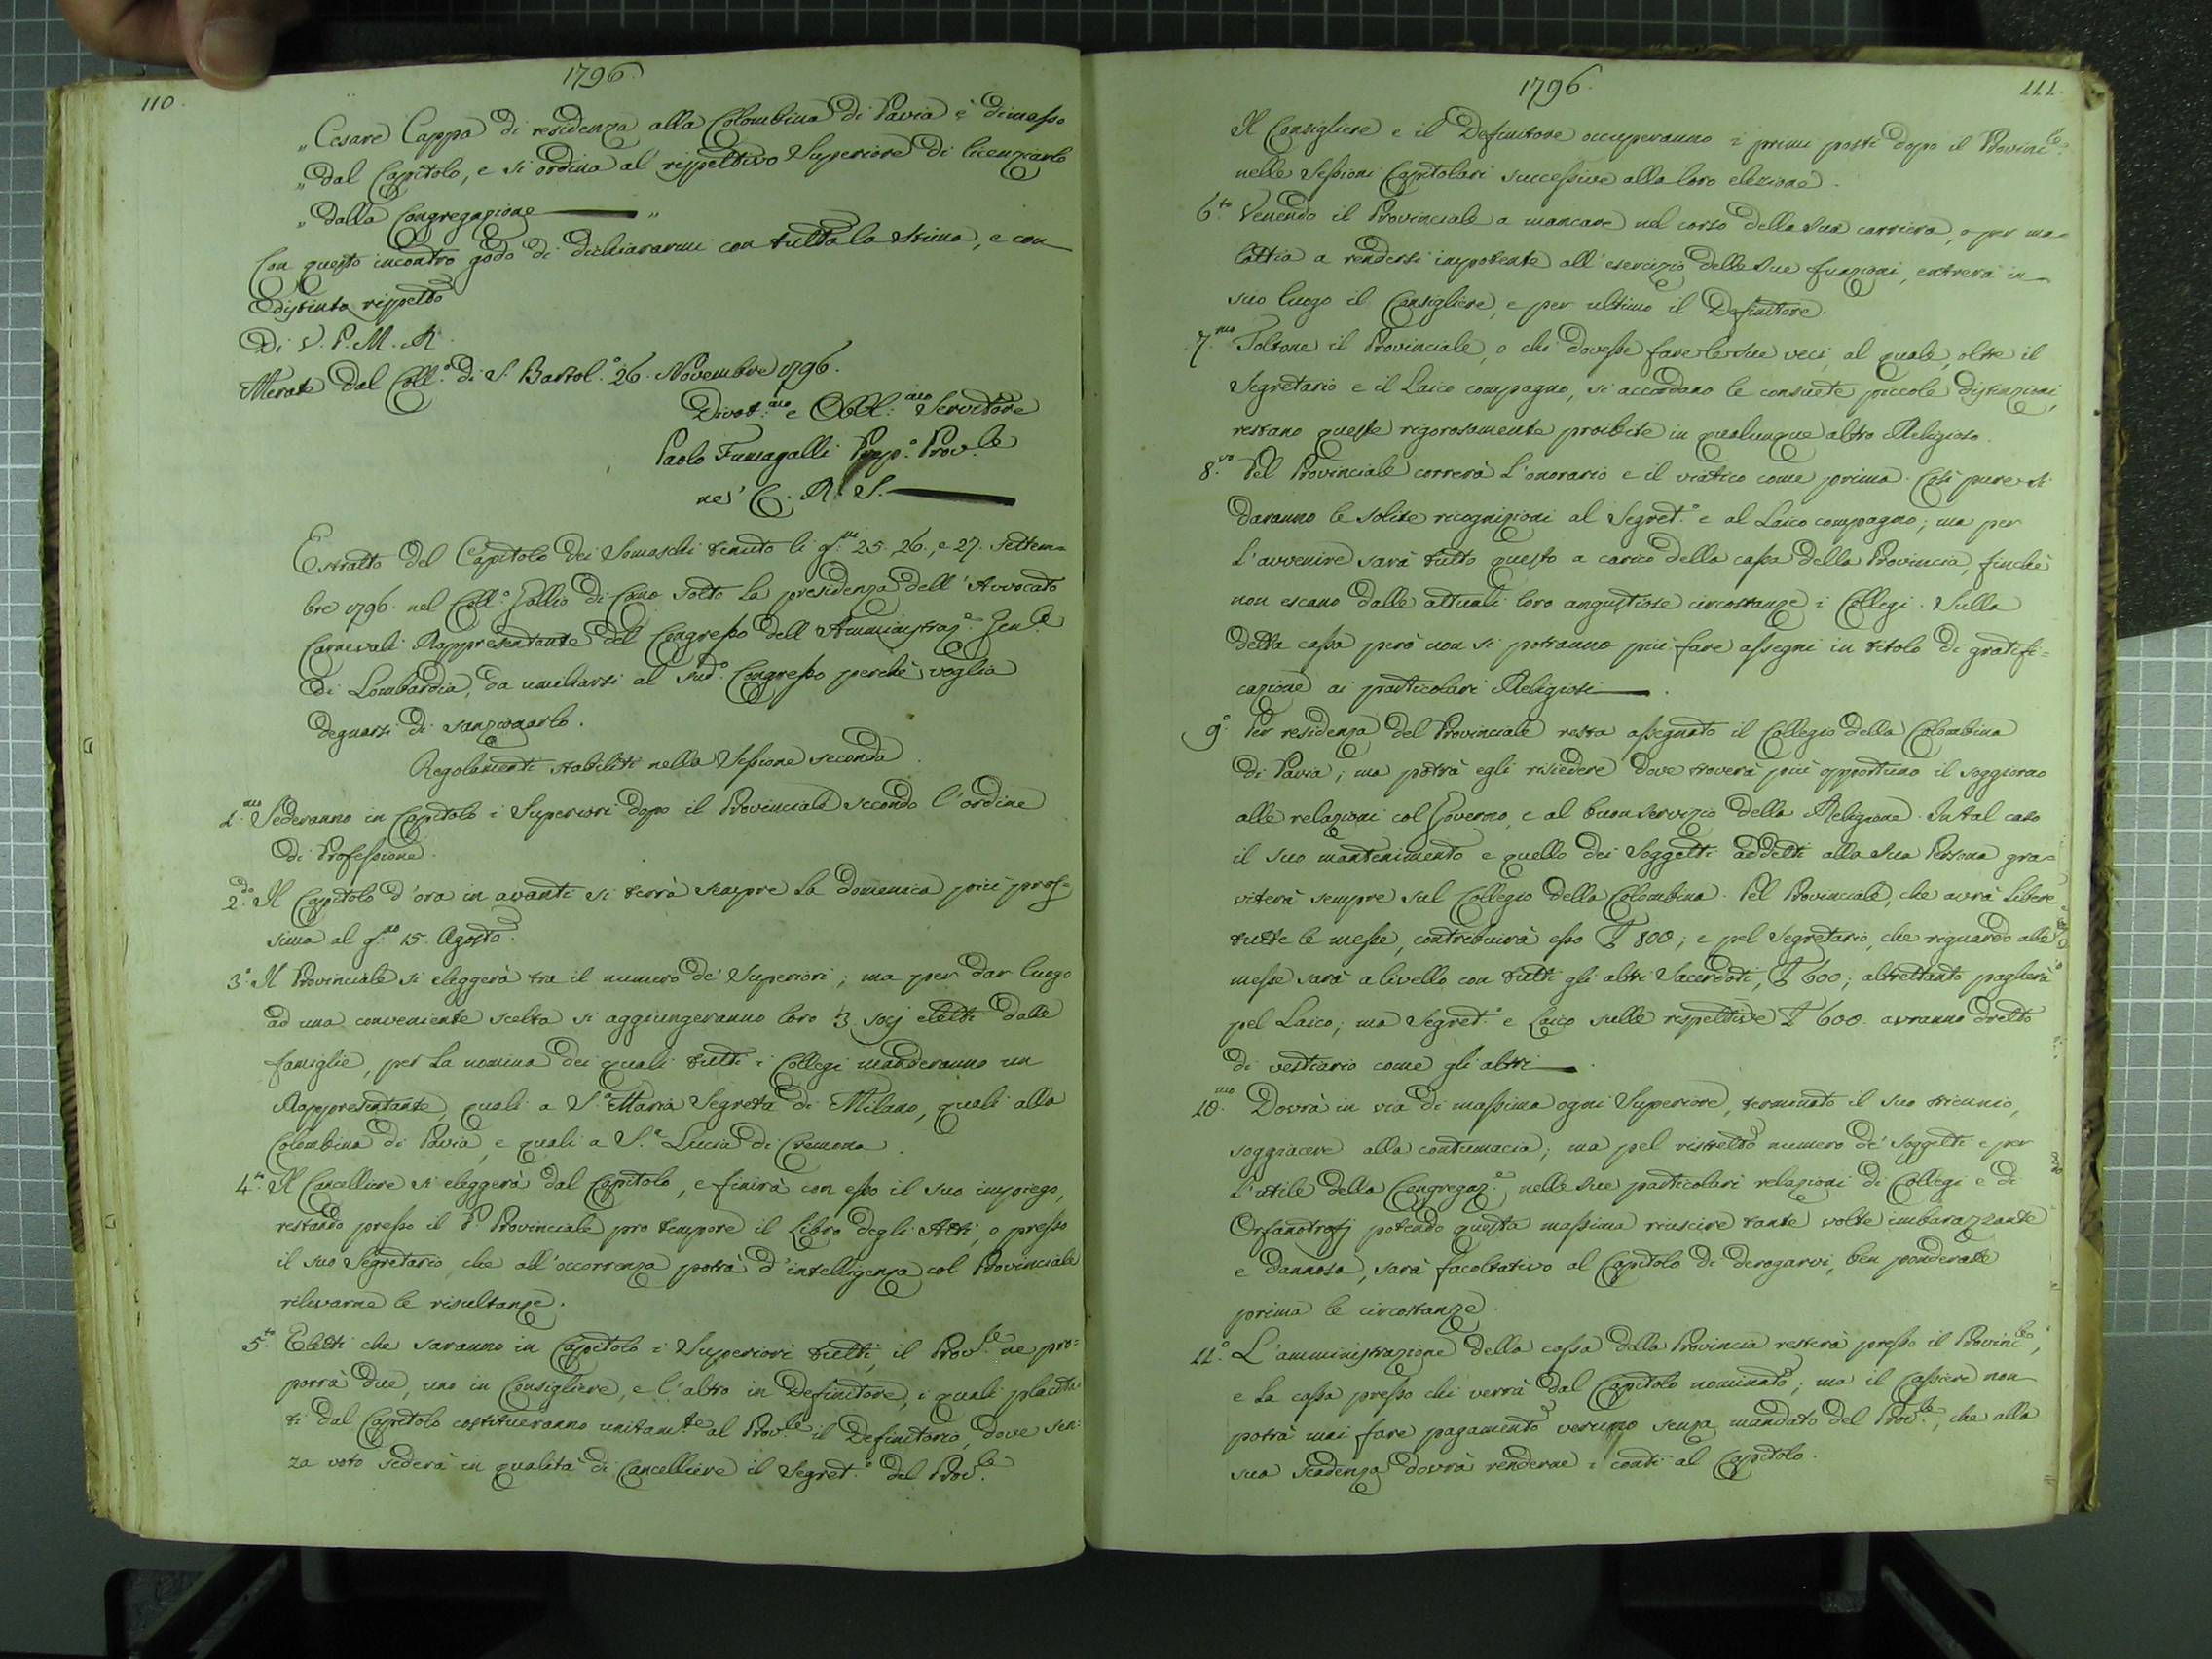 110.
1796.
„ Cesare Cappa di residenza alla Colombina di Pavia è dimesso
„ dal Capitolo, e si ordina al rispettivo Superiore di licenziarlo
„ dalla Congregazione „
Con questo incontro godo di dichiararmi con tutta la stima, e con
distinto rispetto
Di V. P. M. R.
Merate dal Coll.º di S. Bartol.º 26. Novembre 1796.
Divot.mo e Obbl.mo Servitore
Paolo Fumagalli Prep.º Prov.le
ne' C. R. S.
Estratto del Capitolo dei Somaschi tenuto li g.ni 25. 26., e 27. Settem=
bre 1796. nel Coll.º Gallio di Como sotto la presidenza dell'Avvocato
Carnevali Rappresentante del Congresso dell'Amministraz.e Gen.le
di Lombardia, da umiliarsi al Sud.º Congresso perchè voglia
degnarsi di sanzionarlo.
Regolamenti stabiliti nella Sessione seconda.
1.mo Sederanno in Capitolo i Superiori dopo il Provinciale secondo l'ordine
di Professione.
2.do Il Capitolo d'ora in avanti si terrà sempre la domenica più pros=
sima al g.no 15. Agosto.
3.º Il Provinciale si eleggerà tra il numero de' Superiori; ma per dar luogo
ad una conveniente scelta si aggiungeranno loro 3. socj eletti dalle
famiglie, per la nomina dei quali tutti i Collegi manderanno un
Rappresentante, quali a S.a Maria Segreta di Milano, quali alla
Colombina di Pavia, e quali a S.a Lucia di Cremona.
4.to Il Cancelliere si eleggerà dal Capitolo, e finirà con esso il suo impiego,
restando presso il P. Provinciale pro tempore il Libro degli Atti, o presso
il suo Segretario, che all'occorrenza potrà d'intelligenza col Provinciale
rilevarne le risultanze.
5.to Eletti che saranno in Capitolo i Superiori tutti, il Prov.le ne pro=
porrà due, uno in Consigliere, e l'altro in Definitore, i quali placita=
ti dal Capitolo costitueranno unitam.te al Prov.le il Definitorio, dove sen=
za voto sederà in qualità di Cancelliere il Segret.º del Prov.le
1796.
111.
Il Consigliere e il Definitore occuperanno i primi posti dopo il Provinc.le
nelle Sessioni Capitolari successive alla loro elezione.
6.to Venendo il Provinciale a mancare nel corso della sua carriera, o per ma=
lattia a rendersi impotente all'esercizio delle sue funzioni, entrerà in
suo luogo il Consigliere, e per ultimo il Definitore.
7.mo Toltone il Provinciale, o chi dovesse fare le sue veci, al quale, oltre il
Segretario e il Laico compagno, si accordano le consuete piccole distinzioni,
restano queste rigorosamente proibite in qualunque altro Religioso.
8.vo Pel Provinciale correrà l'onorario e il viatico come prima. Così pure si
daranno le solite ricognizioni al Segret.º e al Laico compagno; ma per
l'avvenire sarà tutto questo a carico della cassa della Provincia, finchè
non escano dalle attuali loro angustiose circostanze i Collegi. Sulla
detta cassa però non si potranno più fare assegni in titolo di gratifi=
cazione ai particolari Religiosi.
9.º Per residenza del Provinciale resta assegnato il Collegio della Colombina
di Pavia; ma potrà egli risiedere dove troverà più opportuno il soggiorno
alle relazioni col Governo, e al buon servizio della Religione. In tal caso
il suo mantenimento e quello dei Soggetti addetti alla sua Persona gra=
viterà sempre sul Collegio della Colombina. Pel Provinciale, che avrà libere
tutte le messe, contribuirà esso £ 800; e pel Segretario, che riguardo alle
messe sarà a livello con tutti gli altri Sacerdoti, £ 600; altrettanto pagherà
pel Laico; ma Segret.º e Laico sulle rispettive £ 600. avranno dretto
di vestiario come gli altri.
10.mo Dovrà in via di massima ogni Superiore, terminato il suo triennio,
soggiacere alla contumacia; ma pel ristretto numero de' soggetti e per
l'utile della Congregaz.e nelle sue particolari relazioni di Collegi e di
Orfanotrofj potendo questa massima riuscire tante volte imbarazzante
e dannosa, sarà facoltativo al Capitolo di derogarvi, ben ponderate
prima le circostanze.
11.º L'amministrazione della cassa della Provincia resterà presso il Provinc.le,
e la cassa presso chi verrà dal Capitolo nominato; ma il cassiere non
potrà mai fare pagamento veruno senza mandato del Prov.le, che alla
sua scadenza dovrà renderne i conti al Capitolo.